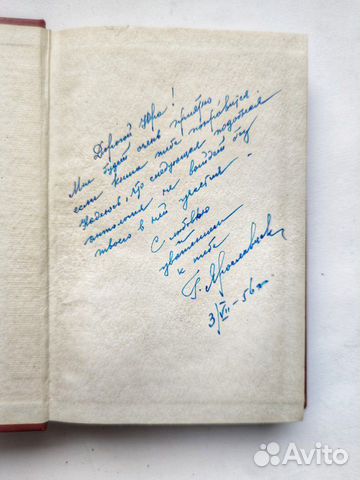 Дорогой Юра!
Мне будет очень приятно
если книга тебе понравится.
Надеюсь, что следующая подобная
антология не выйдет без
твоего в ней участия.
С любовью
и
уважением
к тебе
Г. Ярославцев
3/VII-56 г.
Avito